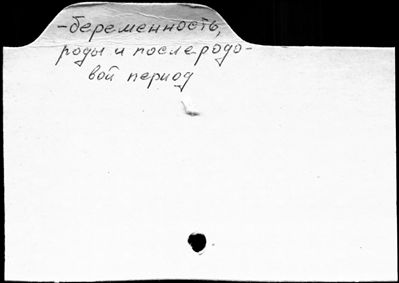 -беременность,
роды и послеродо-
вой период